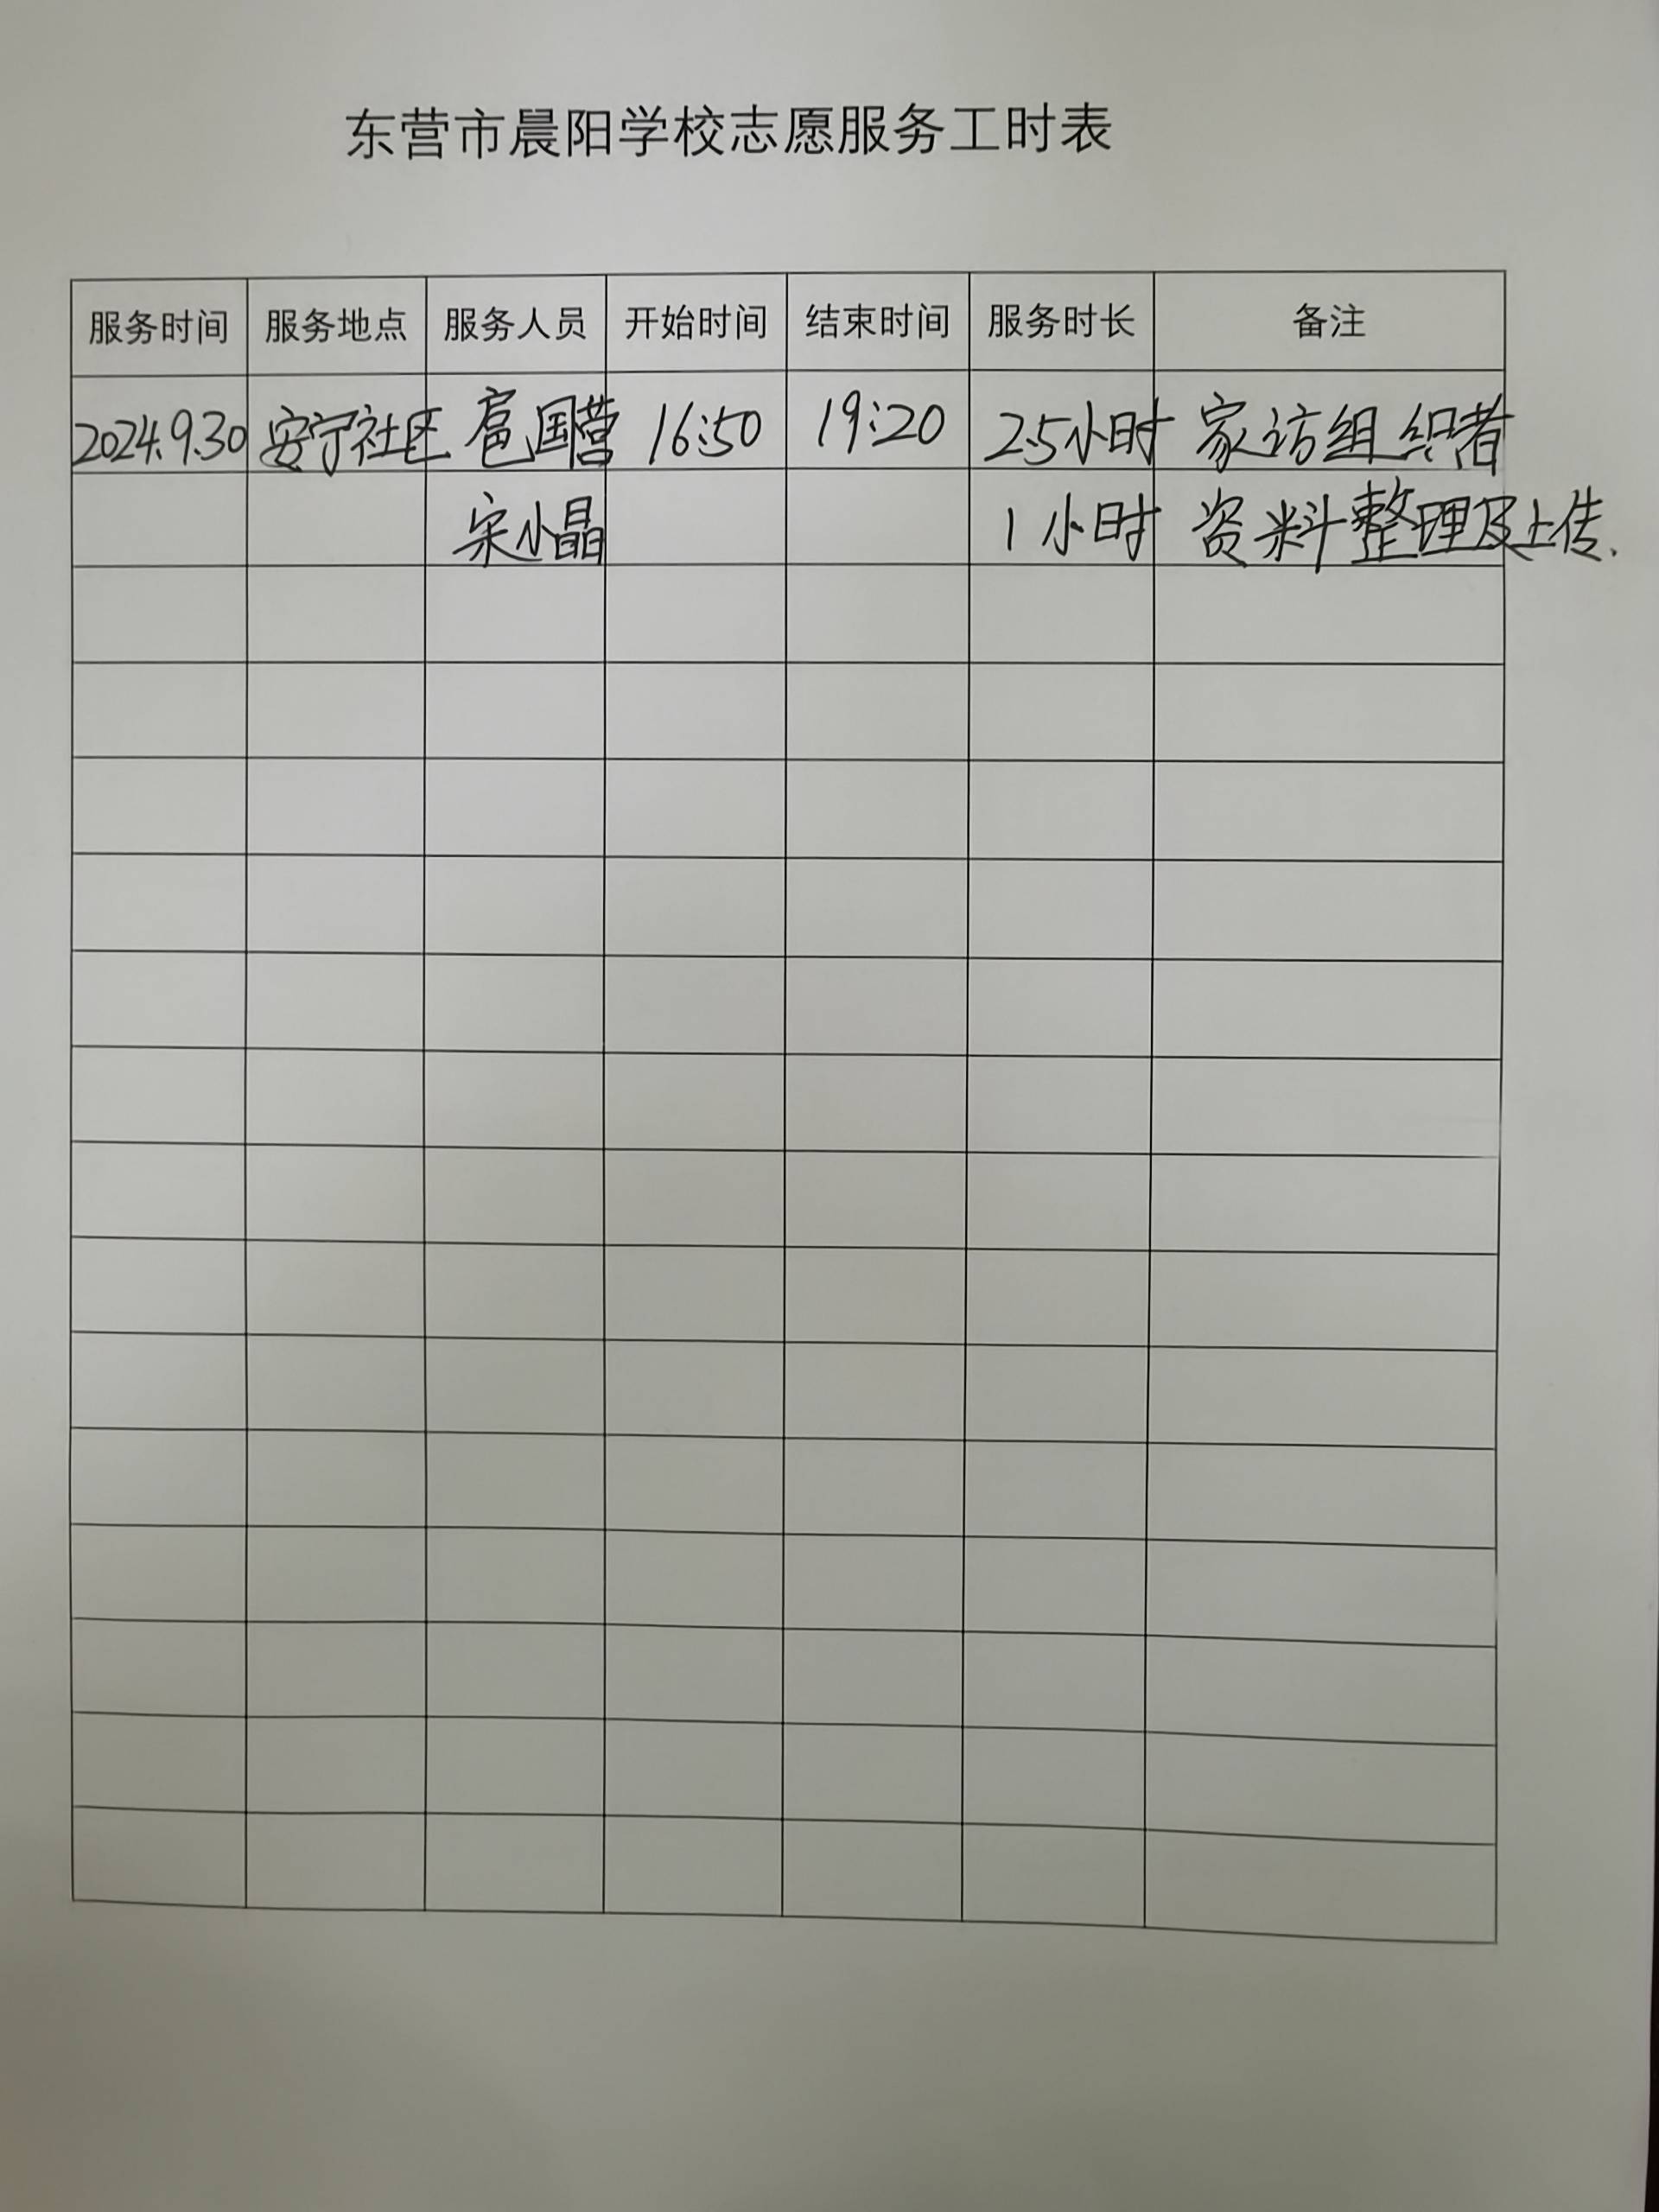 东营市晨阳学校志愿服务工时表
服务时间 服务地点 服务人员 开始时间 结束时间 服务时长 备注
2024.9.30 安宁社区 扈国营 16:50 19:20 2.5小时 家访组织者
宋小晶 1小时 资料整理及上传.